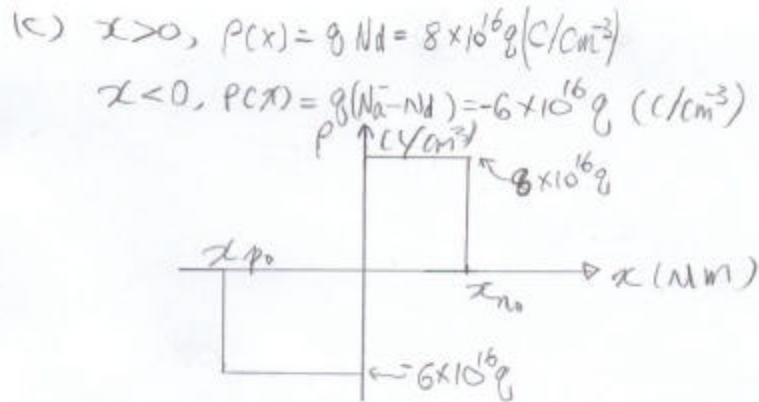 (c) x>0, ρ(x) = q Nd = 8×10^16 q (C/cm^-3)
x<0, ρ(x) = q(Na^- - Nd) = -6×10^16 q (C/cm^-3)
ρ (C/cm^-3)
8×10^16 q
x_p0
x (μm)
x_n0
-6×10^16 q